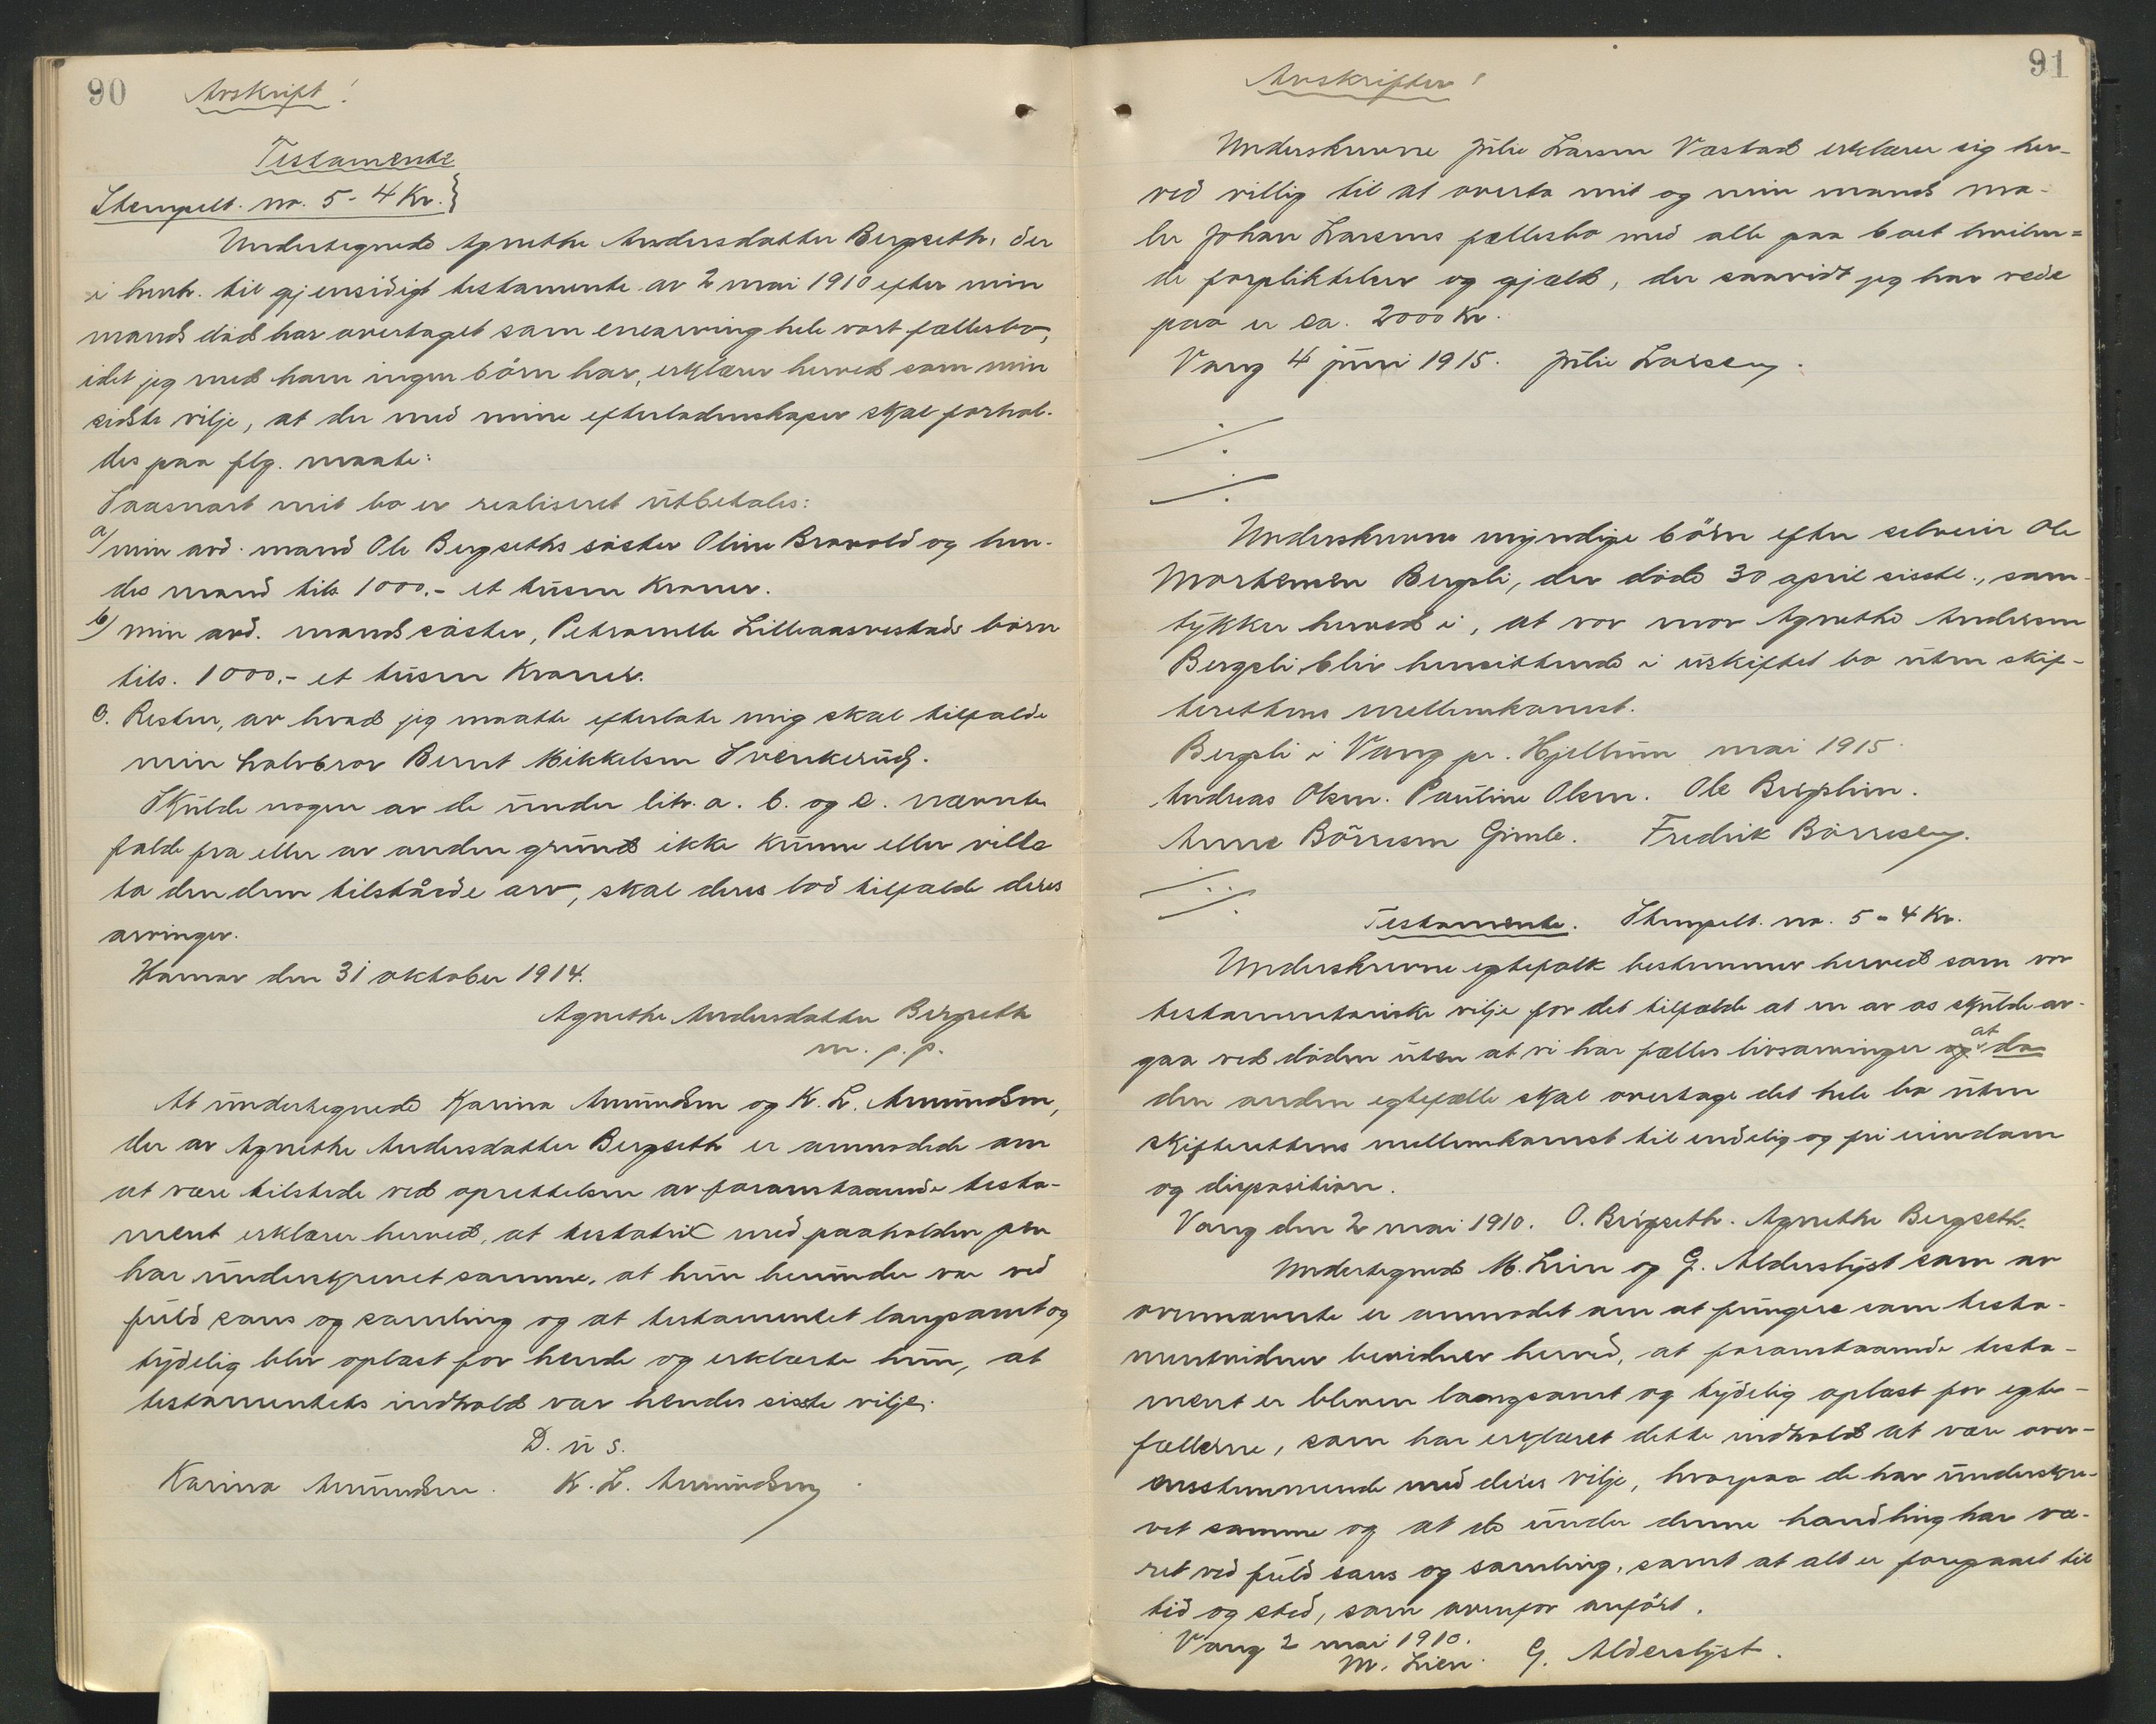 90 Avskrift!
Testamente
Stempelt. no. 5 - 4 Kr.}
Undertegnede Agnethe Andersdatter Bergseth, der
i henh. til gjensidigt testamente av 2 mai 1910 efter min
mands död har overtaget som enearving hele vort fællesbo,
idet jeg med ham ingen börn har, erklærer herved som min
sidste vilje, at der med mine efterladenskaper skal forhol-
des paa flg. maate:
Saasnart mit bo er realiseret utbetales:
a/ min avd. mand Ole Bergseths söster Oline Bravold og hen-
des mand tils 1000.- et tusen Kroner.
b/ min avd. mands söster, Petronelle Lilleaasvestads börn
tils. 1000.- et tusen Kroner.
c. Resten, av hvad jeg maatte efterlate mig skal tilfalde
min halvbror Bernt Mikkelsen Svenkerud.
Skulde nogen av de under litr. a. b. og c. nævnte
falde fra eller av anden grund ikke kunne eller ville
ta den dem tilstående arv, skal deres lod tilfalde deres
arvinger.
Hamar den 31 oktober 1914.
Agnethe Andersdatter Bergseth
m. p. p.
At undertegnede Karina Amundsen og K. L. Amundsen,
der av Agnethe Andersdatter Bergseth er anmodede om
at være tilstede ved oprettelsen av foranstaaende testa-
ment erklærer herved, at testatrix med paaholden pen
har underskrevet samme, at hun herunder var ved
fuld sans og samling og at testamentet langsomt og
tydelig blev oplæst for hende og erklærte hun, at
testamentets indhold var hendes siste vilje.
D. u s.
Karina Amundsen. K. L. Amundsen
91
Avskrifter!
Underskrevne Julie Larsen Væstad erklærer sig her-
ved villig til at overta mit og min mands ma-
ler Johan Larsens fællesbo med alle paa boet hvilen=
de forpliktelser og gjæld, der saavidt jeg har rede
paa er ca. 2000 Kr.
Vang 4 juni 1915. Julie Larsen.
Underskrevne myndige börn efter selveier Ole
Mortensen Bergsli, der döde 30 april sisstl., sam-
tykker herved i, at vor mor Agnethe Andersen
Bergsli blir hensittende i uskiftet bo uten skif-
terettens mellemkomst.
Bergsli i Vang pr. Hjellum mai 1915.
Andreas Olsen. Pauline Olsen. Ole Bergslien.
Anne Börresen Gimle. Fredrik Börresen.
Testamente. Stempelt. no. 5 - 4 Kr.
Underskrevne egtefolk bestemmer herved som vor
testamentariske vilje for det tilfælde at en av os skulde av-
gaa ved döden uten at vi har fælles livsarvinger og at da
den anden egtefælle skal overtage det hele bo uten
skifterettens mellemkomst til endelig og fri eiendom
og disposition.
Vang den 2 mai 1910. O. Bergseth. Agnethe Bergseth.
Undertegnede M. Lien og G. Alderslyst som av
ovennævnte er anmodet om at fungere som testa-
mentvidner bevidner herved, at foranstaaende testa-
ment er bleven langsomt og tydelig oplæst for egte-
fællerne, som har erklæret dette indhold at være over-
ensstemmende med deres vilje, hvorpaa de har underskre-
vet samme og at de under denne handling har væ-
ret ved fuld sans og samling, samt at alt er foregaaet til
tid og sted, som ovenfor anfört.
Vang 2 mai 1910.
M. Lien. G. Alderslyst.